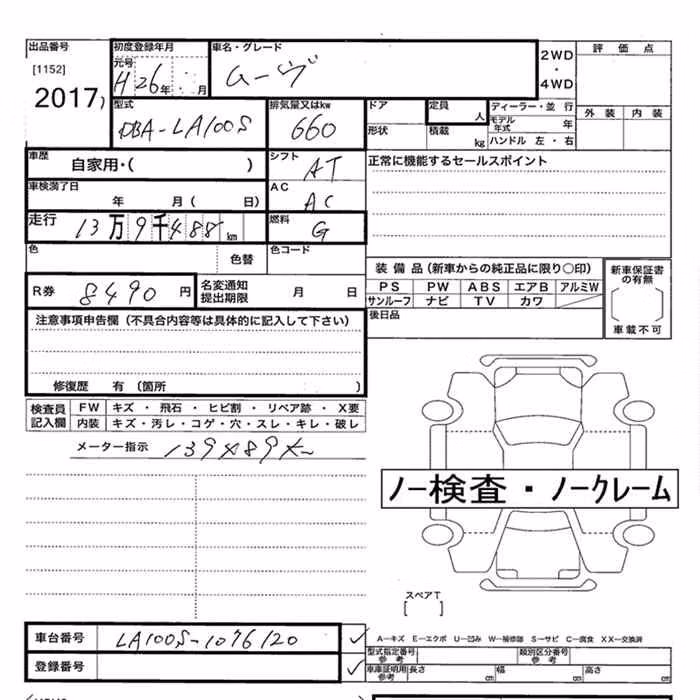 出品番号
[1152]
2017)
初度登録年月
元号
H 26年 月
車名・グレード
ムーヴ
2WD
・
4WD
評価点
外装 内装
型式
DBA-LA100S
排気量又はkw
660
ドア
形状
定員
人
積載
kg
ディーラー・並行
モデル年式 年
ハンドル 左・右
車歴
自家用・( )
シフト
AT
正常に機能するセールスポイント
車検満了日
年 月( 日)
AC
AC
走行
13万9千488km
燃料
G
色
色替
色コード
R券 8490円
名変通知
提出期限
月 日
装備品(新車からの純正品に限り○印)
PS PW ABS エアB アルミW
サンルーフ ナビ TV カワ
新車保証書
の有無
車載不可
後日品
注意事項申告欄(不具合内容等は具体的に記入して下さい)
修復歴 有(箇所 )
検査員
記入欄
FW キズ・飛石・ヒビ割・リペア跡・X要
内装 キズ・汚レ・コゲ・穴・スレ・キレ・破レ
メーター指示
ノー検査・ノークレーム
スペアT
[ ]
車台番号 LA100S-1076120
登録番号
A－キズ E－エクボ U－凹み W－補修跡 S－サビ C－腐食 XX－交換済
型式指定番号
参考
類別区分番号
参考
車庫証明用
参考
長さ cm 幅 cm 高さ cm